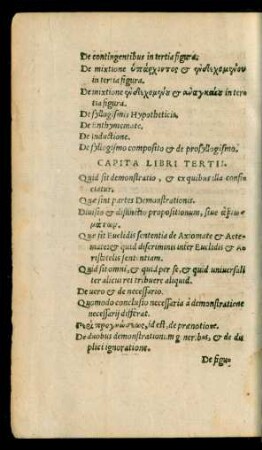 De contingentibus in tertia figura.
De mixtione ὑπάρχοντος & ἐνδεχομένου
in tertia figura.
De mixtione ἐνδεχομένου & ἀναγκαίου in ter
tia figura.
De syllogismis Hypotheticis.
De Enthymemate.
De inductione.
De syllogismo composito & de prosyllogismo.
CAPITA LIBRI TERTII.
Quid sit demonstratio, & ex quibus illa confi
ciatur.
Quæ sint partes Demonstrationis.
Diuisio & distinctio propositionum, siue ἀξιω-
μάτων.
Quæ sit Euclidis sententia de Axiomate & Aete-
mate: & quid discriminis inter Euclidis & A-
ristotelis sententiam.
Quid sit omni, & quid per se, & quid uniuersali
ter alicui rei tribuere aliquid.
De uero & de necessario.
Quomodo conclusio necessaria à demonstratione
necessarij differat.
Περὶ προγνώσεως, id est, de prænotione.
De duobus demonstrationum generibus, & de du
plici ignoratione.
De figu-